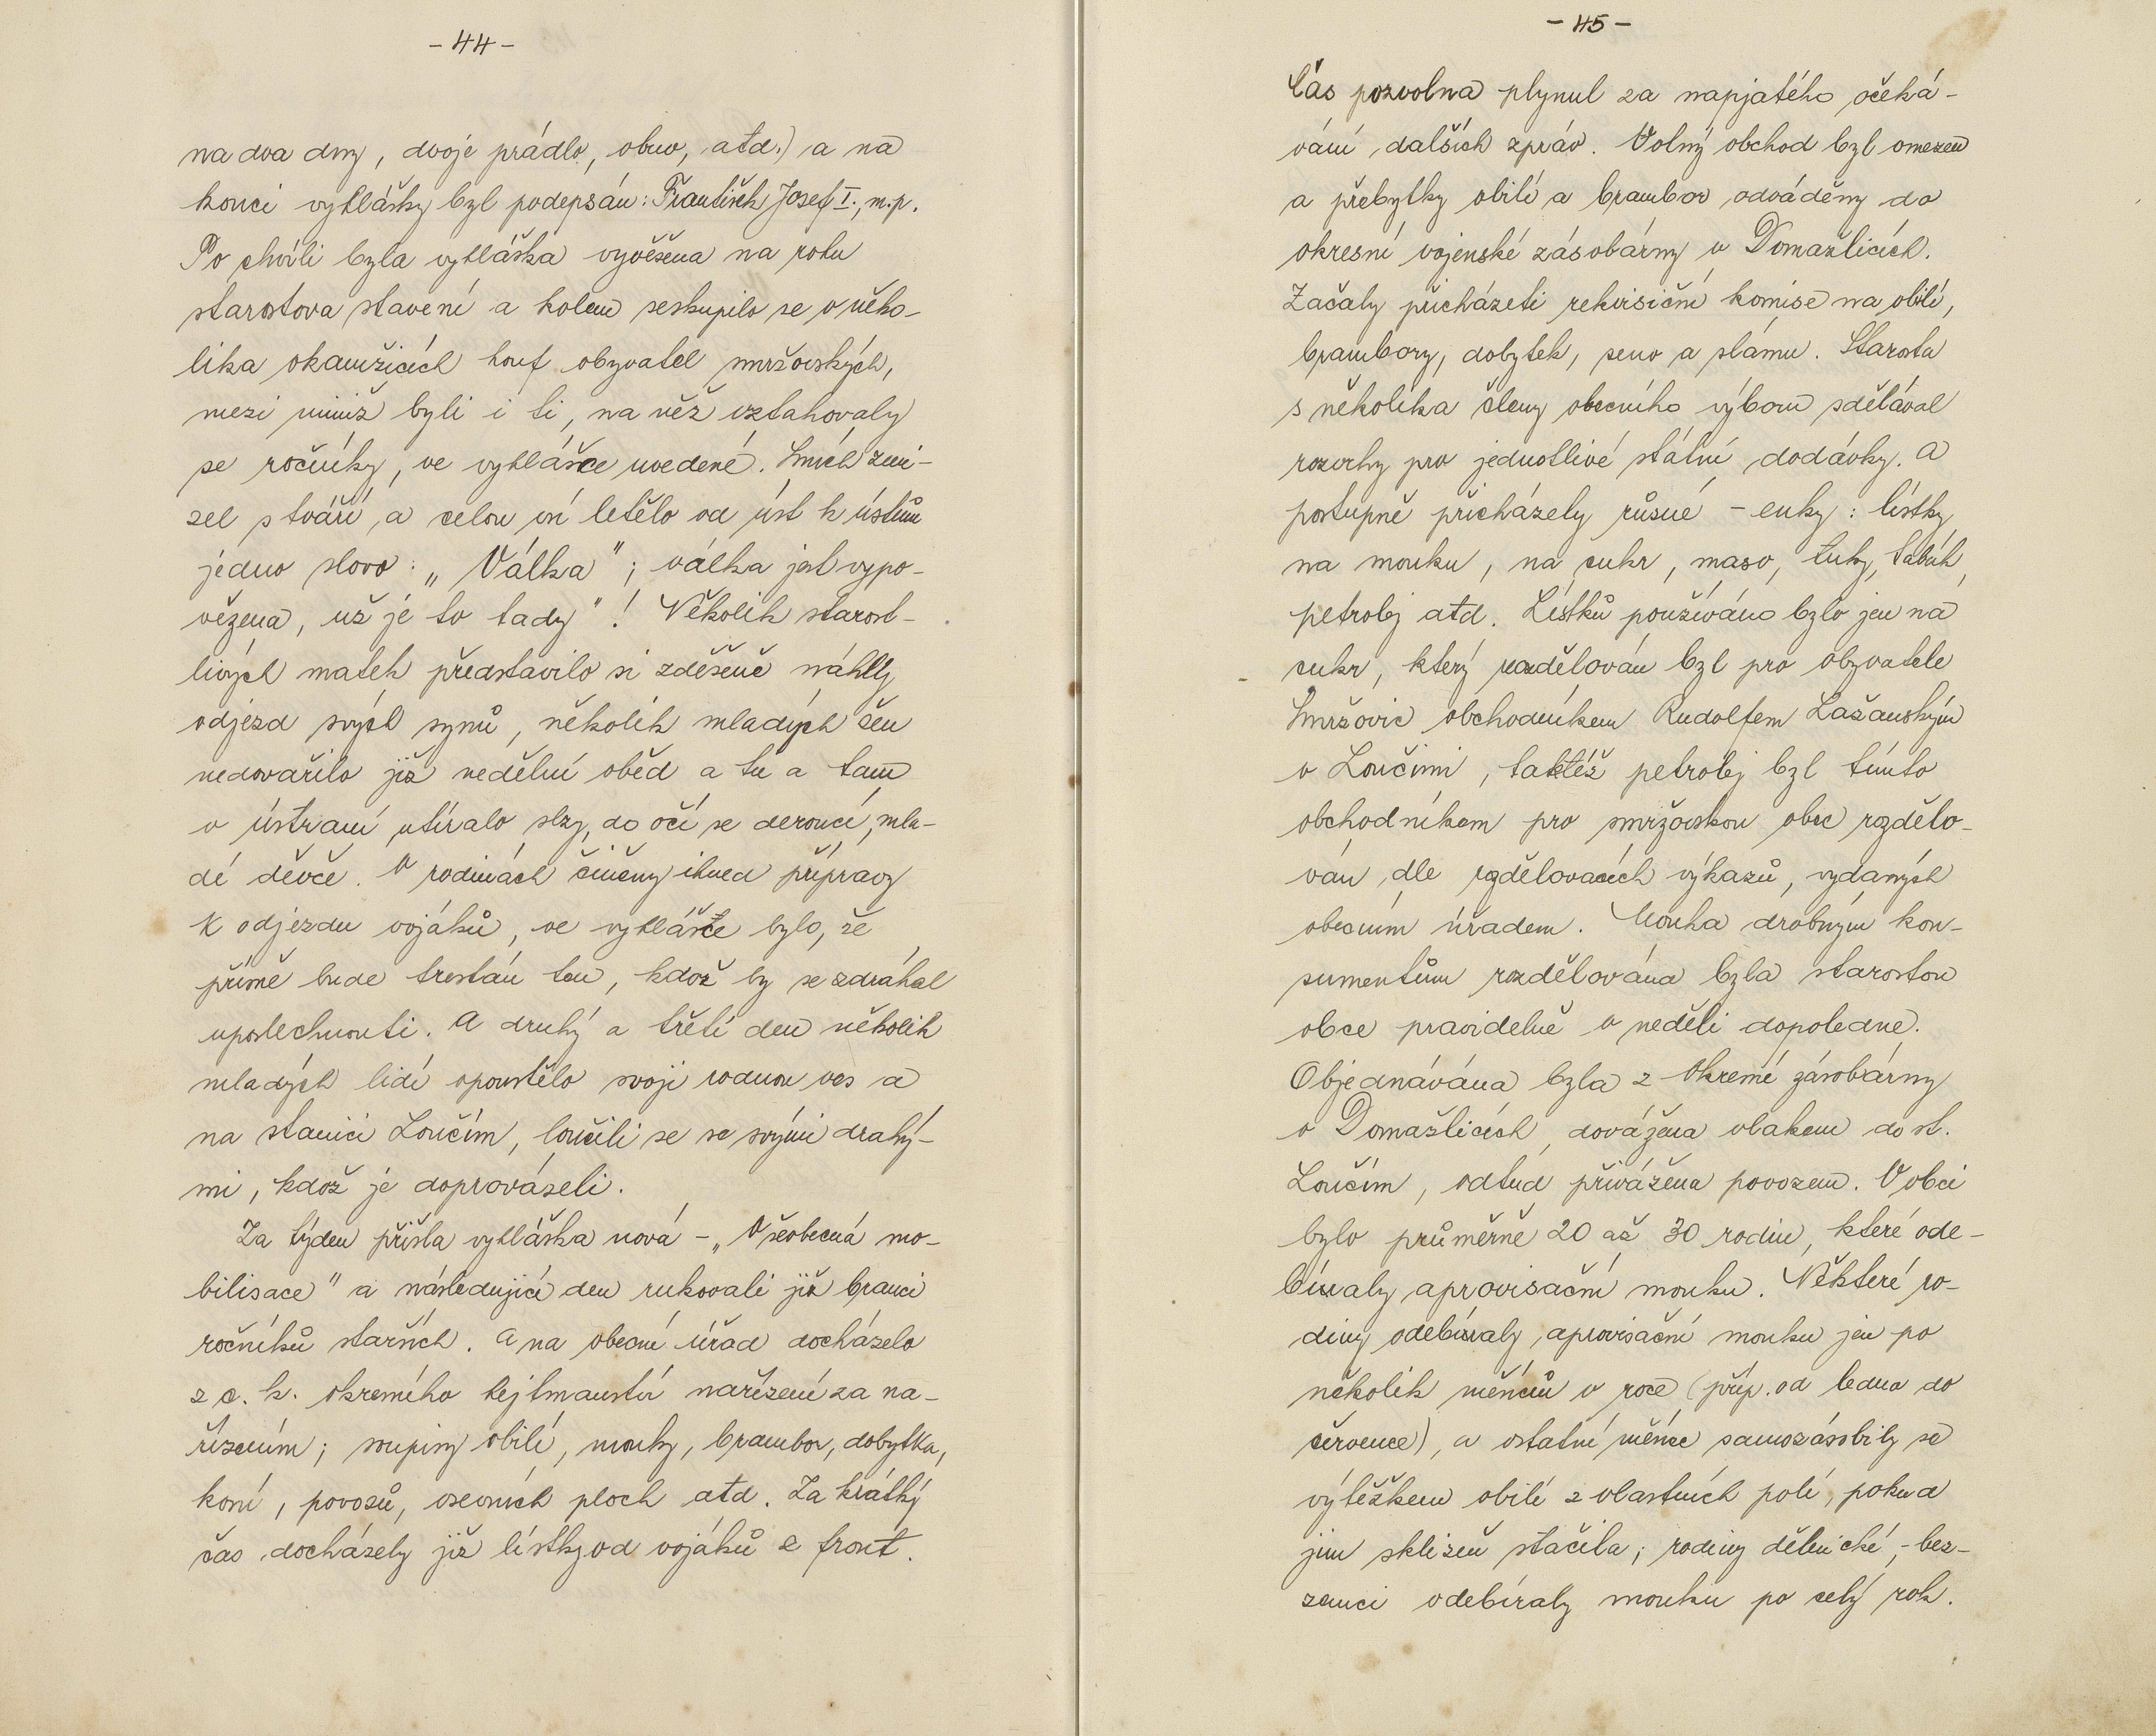 - 44 -
na dva dny, dvoje prádlo, obuv, atd.) a na
konci vyhlášky byl podepsán: František Josef I., m.p.
Po chvíli byla vyhláška vyvěšena na rohu
starostova stavení a kolem seskupilo se v něko-
lika okamžicích houf obyvatel smržovských,
mezi nimiž byli i ti, na něž vztahovaly
se ročníky, ve vyhlášce uvedené. Smích zmi-
zel s tváří, a celou vsí letělo od úst k ústům
jedno slovo: „Válka"; válka jest vypo-
vězena, už je to tady"! Několik starost-
livých matek představilo si zděšeně náhlý
odjezd svých synů, několik mladých žen
nedovařilo již nedělní oběd a tu a tam
v ústraní utíralo slzy, do očí se deroucí, mla-
dé děvče. V rodinách činěny ihned přípravy
k odjezdu vojáků, ve vyhlášce bylo, že
přísně bude trestán ten, kdož by se zdráhal
uposlechnouti. A druhý a třetí den několik
mladých lidí opouštělo svoji rodnou ves a
na stanici Loučím, loučili se se svými drahý-
mi, kdož je doprovázeli.
Za týden přišla vyhláška nová - „Všeobecná mo-
bilisace" a následující den rukovali již branci
ročníků starších. A na obecní úřad docházelo
z c. k. okresního hejtmanství nařízení za na-
řízením; soupisy obilí, mouky, brambor, dobytka,
koní, povozů, osevních ploch atd. Za krátký
čas docházely již lístky od vojáků z front.
- 45 -
Čas pozvolna plynul za napjatého očeká-
vání dalších zpráv. Volný obchod byl omezen
a přebytky obilí a brambor odváděny do
okresní vojenské zásobárny v Domažlicích.
Začaly přicházeti rekvisiční komise na obilí,
brambory, dobytek, seno a slámu. Starosta
s několika členy obecního výboru sdělával
rozvrhy pro jednotlivé státní dodávky. A
postupně přicházely různé - enky: lístky
na mouku, na cukr, maso, tuky, tabák,
petrolej atd. Lístků používáno bylo jen na
cukr, který rozdělován byl pro obyvatele
Smržovic obchodníkem Rudolfem Lažanským
v Loučimi, taktéž petrolej byl tímto
obchodníkem pro smržovskou obec rozdělo-
ván dle rozdělovacích výkazů, vydaných
obecním úřadem. Mouka drobným kon-
sumentům rozdělována byla starostou
obce pravidelně v neděli dopoledne.
Objednávána byla z Okresní zásobárny
v Domažlicích, dovážena vlakem do st.
Loučím, odtud přivážena povozem. V obci
bylo průměrně 20 až 30 rodin, které ode-
bíraly aprovisační mouku. Některé ro-
diny odebíraly aprovisační mouku jen po
několik měsíců v roce (příp. od ledna do
července), a ostatní měsíce samozásobily se
výtěžkem obilí z vlastních polí, pokud
jim sklizeň stačila; rodiny dělnické, - bez-
zemci odebíraly mouku po celý rok.